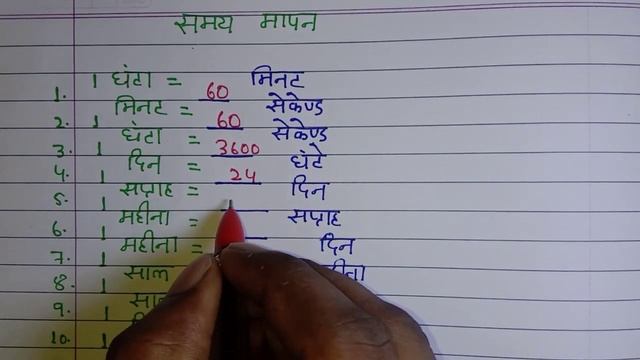 समय मापन
1. 1 घंटा = 60 मिनट
2. 1 मिनट = 60 सेकेण्ड
3. 1 घंटा = 3600 सेकेण्ड
4. 1 दिन = 24 घंटे
5. 1 सप्ताह = दिन
6. 1 महीना = सप्ताह
7. 1 महीना = दिन
8. 1 साल
9. 1
10. 1